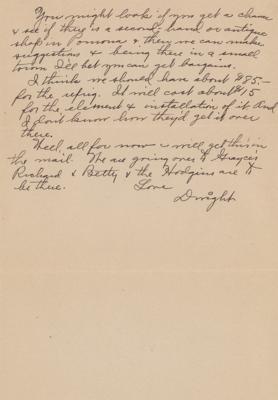 You might look if you get a chance
& see if they is a second hand or antique
shop in Pomona & they we can make
suggestions & being there in a small
town I'll bet you can get bargains.
I think we should have about $85.-
for the refrig. It will cost about $15
for the element & installation of it And
I don't know how they'd get it over
there.
Well, all for now - will get this in
the mail. We are going over to Grayce's
Richard & Betty & the Hodgins are to
be there. Love
Dwight